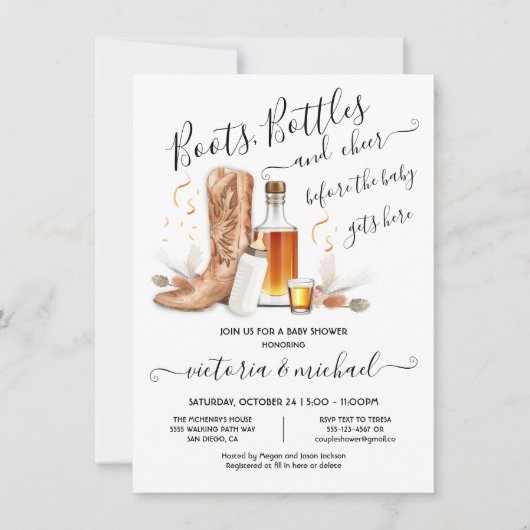 Boots, Bottles
and cheer
before the baby
gets here
JOIN US FOR A BABY SHOWER
HONORING
victoria & michael
SATURDAY, OCTOBER 24 | 5:00 - 11:00PM
THE MCHENRY'S HOUSE
5555 WALKING PATH WAY
SAN DIEGO, CA
RSVP TEXT TO TERESA
555-123-4567 OR
coupleshower@gmail.co
Hosted by Megan and Jason Jackson
Registered at fill in here or delete